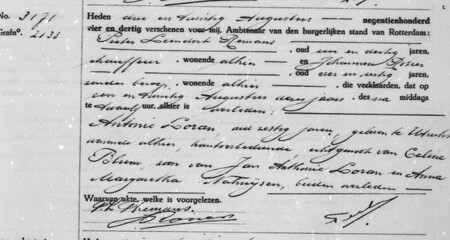 No. 3171
Grafn°. 2133
Heden drie en twintig Augustus negentienhonderd
vier en dertig verschenen voor mij, Ambtenaar van den burgerlijken stand van Rotterdam:
Pieter Leendert Remans, oud een en dertig jaren,
chauffeur, wonende alhier en Johannes
oud vier en dertig jaren,
zonder beroep, wonende alhier, die verklaarden, dat op
een en twintig Augustus dezes jaars des na middags
te twaalf uur, alhier is overleden:
Antonie Loran, oud zestig jaren, geboren te Utrecht,
wonende alhier, kantoorbediende, echtgenoot van Celine
Blum, zoon van Jan Anthonie Loran en Anna
Margaretha, beiden overleden
Waarvan akte, welke is voorgelezen.